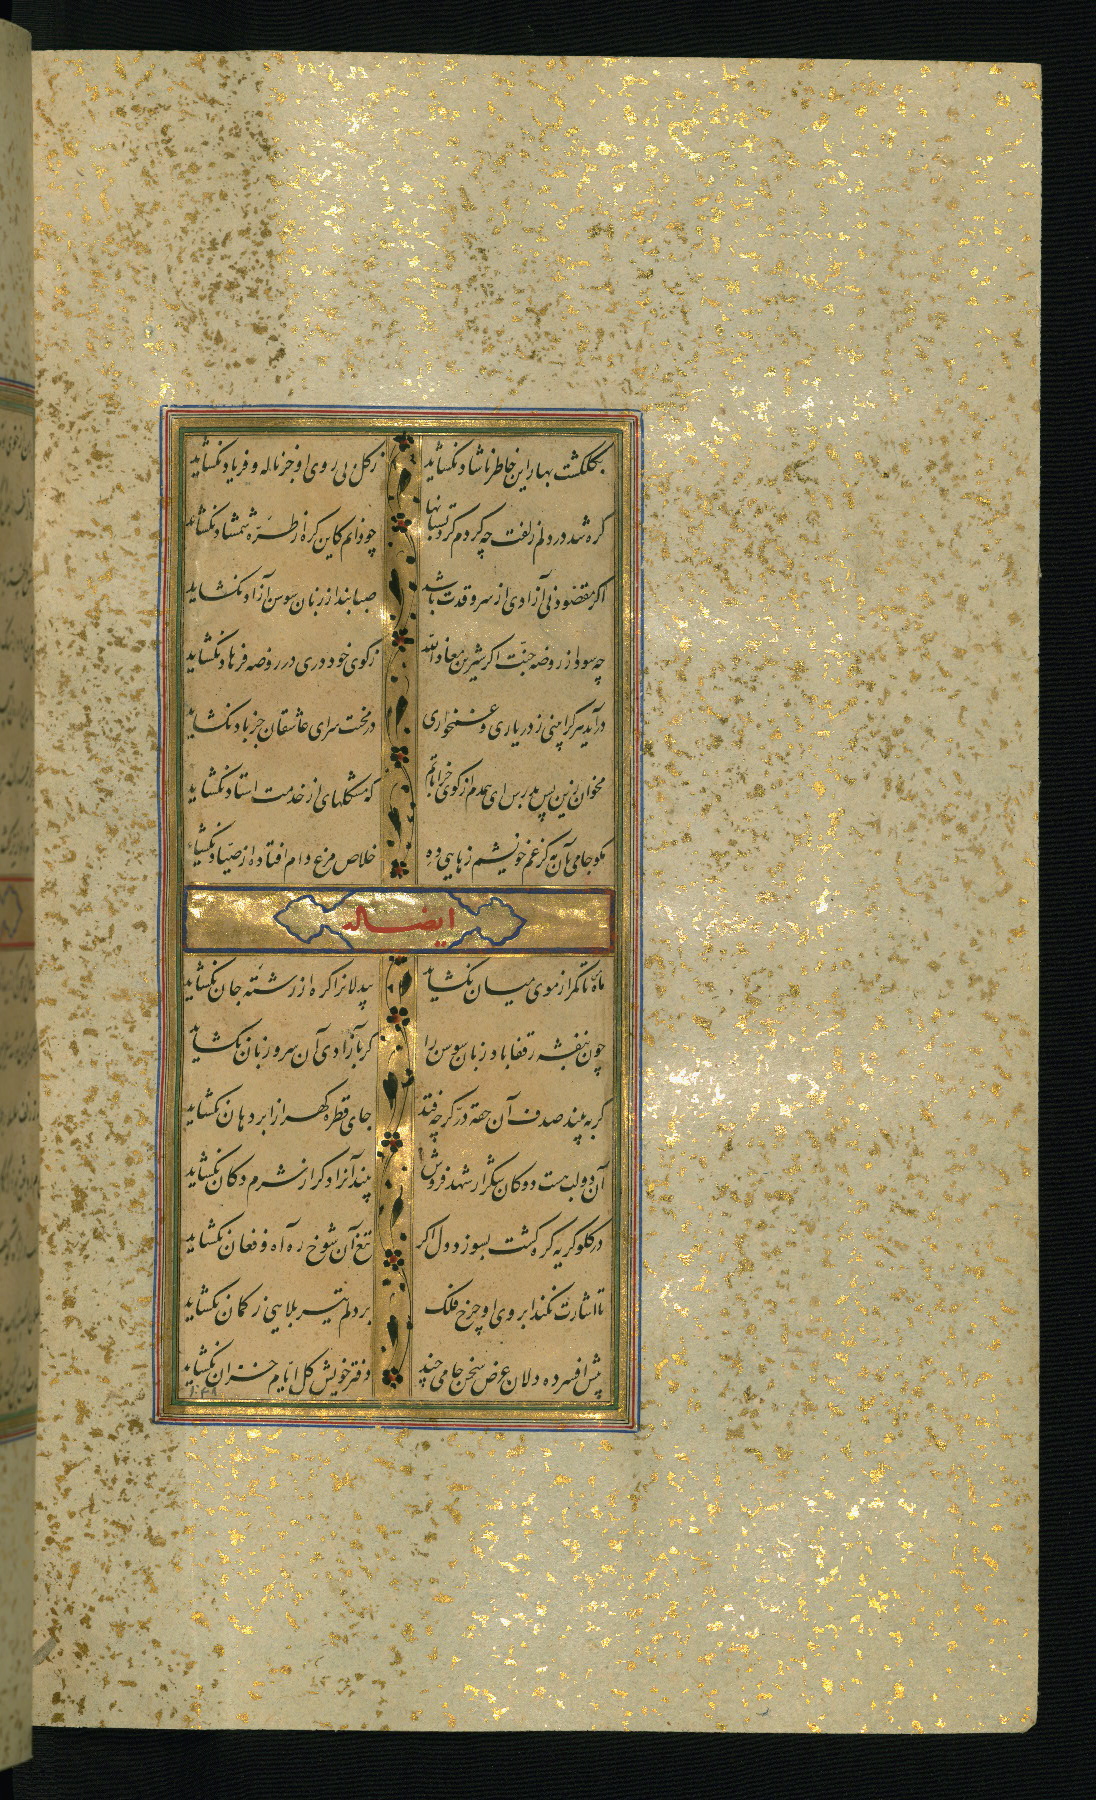 بکلکشت بهار این خاطر ناشاد نکشاید زکل بی روی او جز ناله و فریاد نکشاید
کره شد در دلم زلفت چه کردم کرد بستانها چو دانم کاین کره از طرّه شمشاد نکشاید
اکر مقصود نی آزادی از سرو قدت باشد صبا بند از زبان سوسن آزاد نکشاید
چه سود از روضه جنّت اکر شیرین معاذ الله زکوی خود دری در روضه فرهاد نکشاید
در آید هر کرا بینی ز در یاری و غمخواری در محنت سرای عاشقان جز باد نکشاید
مخوان زین پس بدرس ای همدم از کوی خراباتم که مشکلهای ما از خدمت استاد نکشاید
مکو جامی بآن به کز غم خویشم رهایی ده خلاص مرغ دام افتاده از صیّاد نکشاید
ایضا له
ماه ما تا کمر از موی میان نکشاید بیدلانرا کره از رشته جان نکشاید
چون بنفشه ز قفا باد زبان سوسن را کر بآزادی آن سرو زبان نکشاید
کر به بیند صدف آن حقه در کرچه فتد جای قطره کهر از ابر دهان نکشاید
آن دو لب هست دو دکان شکر از شهد فروش بیند آنرا دکر از شرم دکان نکشاید
در کلو کریه کره کشت بسوزد دل اکر تیغ آن شوخ ره آه و فغان نکشاید
تا اشارت نکند ابروی او چرخ فلک بر دلم تیر بلایی ز کمان نکشاید
پیش افسرده دلان عرض سخن جامی چند دفتر خویش کل ایّام خزان نکشاید